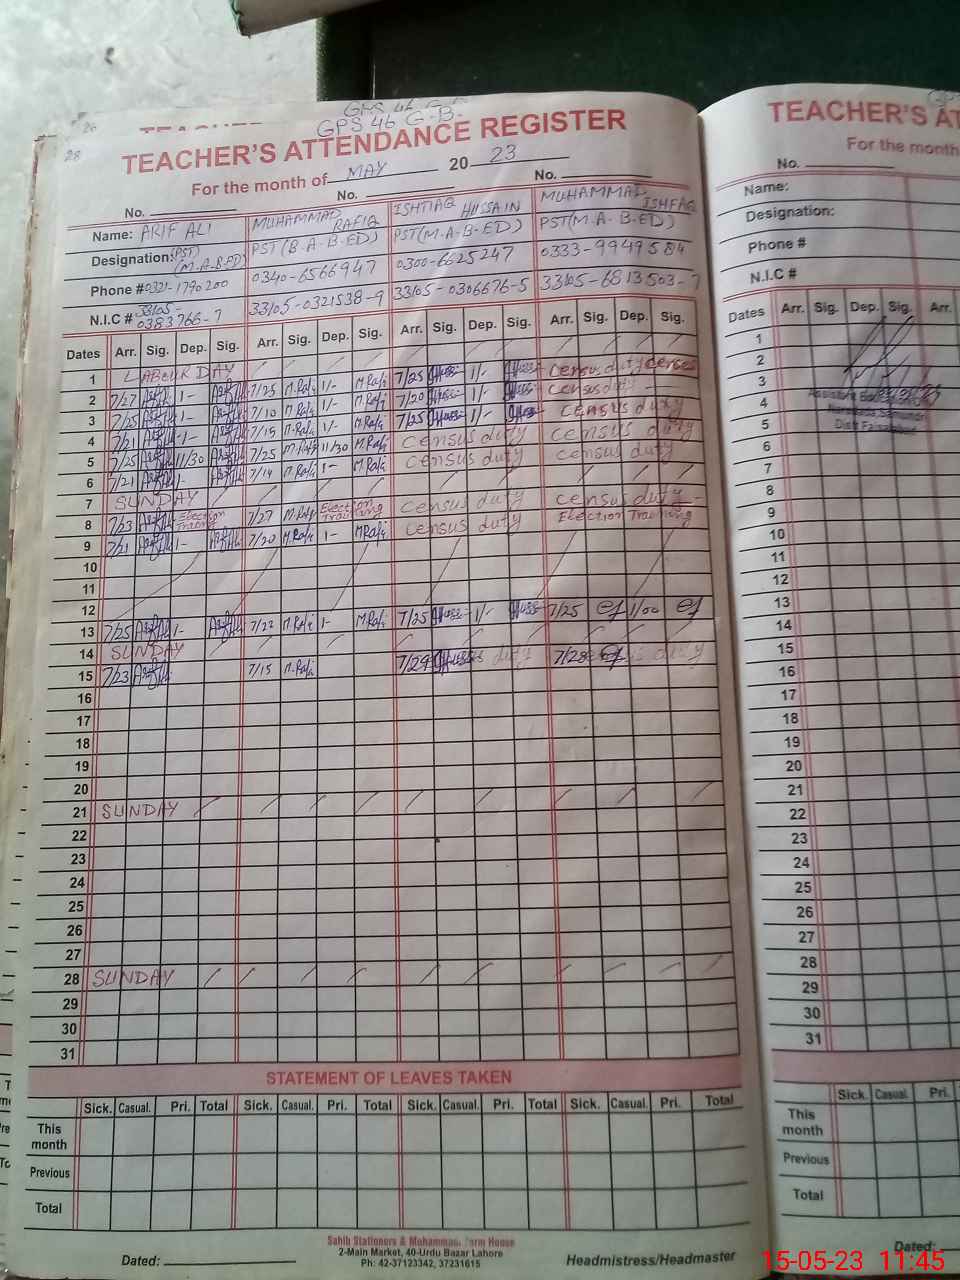 GPS 46 G-B-
28
TEACHER'S ATTENDANCE REGISTER
For the month of MAY 20 23
No. No. No.
Name: ARIF ALI MUHAMMAD RAFIQ ISHTIAQ HUSSAIN MUHAMMAD ISHFAQ
Designation: (PST) (M.A.B.ED) PST (B-A-B-ED) PST(M.A-B-ED) PST(M.A-B-ED)
Phone # 0321-1790200 0340-6566947 0300-6625247 0333-9949584
N.I.C # 33105-0383766-7 33105-0321538-9 33105-0306676-5 33105-6813503-7
Dates Arr. Sig. Dep. Sig. Arr. Sig. Dep. Sig. Arr. Sig. Dep. Sig. Arr. Sig. Dep. Sig.
1 LABOUR DAY
2 7/27 1- 7/25 M.Rafi 1/- M.Rafi 7/25 1/- Census duty
3 7/25 1- 7/10 M.Rafi 1/- M.Rafi 7/20 1/- Census duty
4 7/21 1- 7/15 M.Rafi 1/- M.Rafi 7/25 1/- Census duty
5 7/25 11/30 7/25 M.Rafi 11/30 M.Rafi Census duty Census duty
6 7/21 1- 7/14 M.Rafi 1- M.Rafi Census duty Census duty
7 SUNDAY
8 7/23 Election 7/27 M.Rafi Election Census duty Census duty
9 7/21 1- 7/20 M.Rafi 1- M.Rafi Census duty Election
10
11
12
13 7/25 1- 7/22 M.Rafi 1- M.Rafi 7/25 1/- 7/25 1/00
14 SUNDAY
15 7/23 7/15 M.Rafi 7/29 duty 7/28 duty
16
17
18
19
20
21 SUNDAY
22
23
24
25
26
27
28 SUNDAY
29
30
31
STATEMENT OF LEAVES TAKEN
Sick. Casual. Pri. Total Sick. Casual. Pri. Total Sick. Casual. Pri. Total Sick. Casual. Pri. Total
This month
Previous
Total
Sahib Stationers & Muhammad Form House
2-Main Market, 40-Urdu Bazar Lahore
Ph: 42-37123342, 37231615
Dated: Headmistress/Headmaster
TEACHER'S AT
For the month
No.
Name:
Designation:
Phone #
N.I.C #
Dates Arr. Sig. Dep. Sig. Arr.
1
2
3
4
5
6
7
8
9
10
11
12
13
14
15
16
17
18
19
20
21
22
23
24
25
26
27
28
29
30
31
Sick. Casual. Pri.
This month
Previous
Total
Dated:
15-05-23 11:45